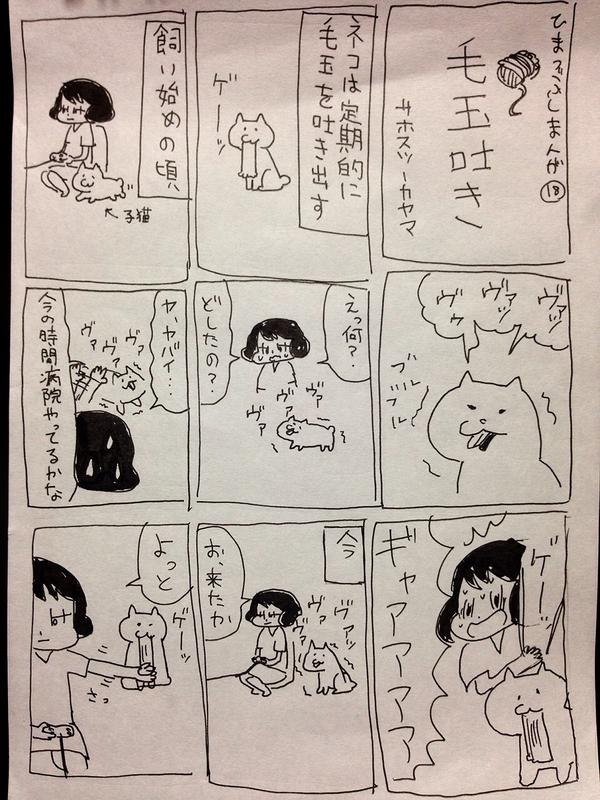 ひまつぶしまんが⑱
毛玉吐き
サホスツーカヤマ
ネコは定期的に
毛玉を吐き出す
ゲーッ
飼い始めの頃
↖子猫
ヴァッ
ヴァッ
ヴゥ
ブルブル
えっ何?
どしたの?
ヴァー
ヴァ
ヴァ
ヤ、ヤバイ…
ヴァ
ヴァ
ヴァ
今の時間病院やってるかな
ゲーッ
ギャアアアアア
今
ヴァッ
ヴァ
ヴァ
お、来たか
ゲーッ
よっと
さっ